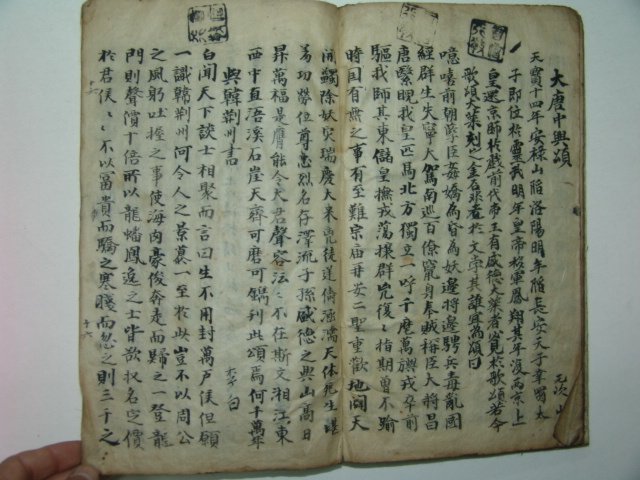 大唐中興頌
元次山
天寶十四年安祿山陷洛陽明年陷長安天子幸蜀太
子即位於靈武明年皇帝移軍鳳翔其年復两京上
皇還京師於戲前代帝王有盛德大業者必見於歌頌若今
歌頌大業刻之金石非老於文學其誰宜為頌曰
噫嘻前朝孽臣姦驕為昏為妖邊將騁兵毒亂國
經群生失寧大駕南巡百僚竄身奉賊稱臣天將昌
唐繄睨我皇匹馬北方獨立一呼千麾萬旟戎卒前
驅我師其東儲皇撫戎蕩攘群兇復〻指期曾不踰
時国有無之事有至難宗庙再安二聖重歡地闢天
開蠲除妖灾瑞慶大来兇徒逆儔涵濡天休死生堪
羞功勞位尊忠烈名存澤流子孫盛德之興山高日
昇萬福是膺能令大君聲容沄〻不在斯文湘江東
西中直浯溪石崖天齊可磨可鐫刊此頌焉何千萬年
與韓荊州書
太白
白聞天下談士相聚而言曰生不用封萬戶侯但願
一識韓荊州何令人之景慕一至於此豈不以周公
之風躬吐握之事使海內豪俊奔走而歸之一登龍
門則聲價十倍所以龍蟠鳳逸之士皆欲收名定價
於君侯〻〻不以富貴而驕之寒賤而忽之則三千之